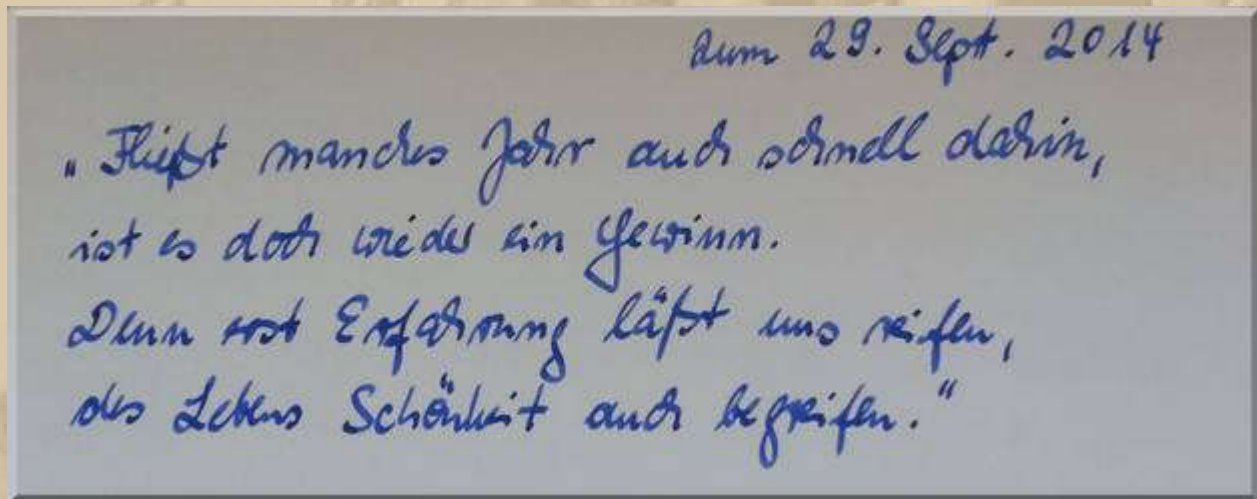 zum 29. Sept. 2014
„Fließt manches Jahr auch schnell dahin,
ist es doch wieder ein Gewinn.
Denn erst Erfahrung läßt uns reifen,
des Lebens Schönheit auch begreifen.“